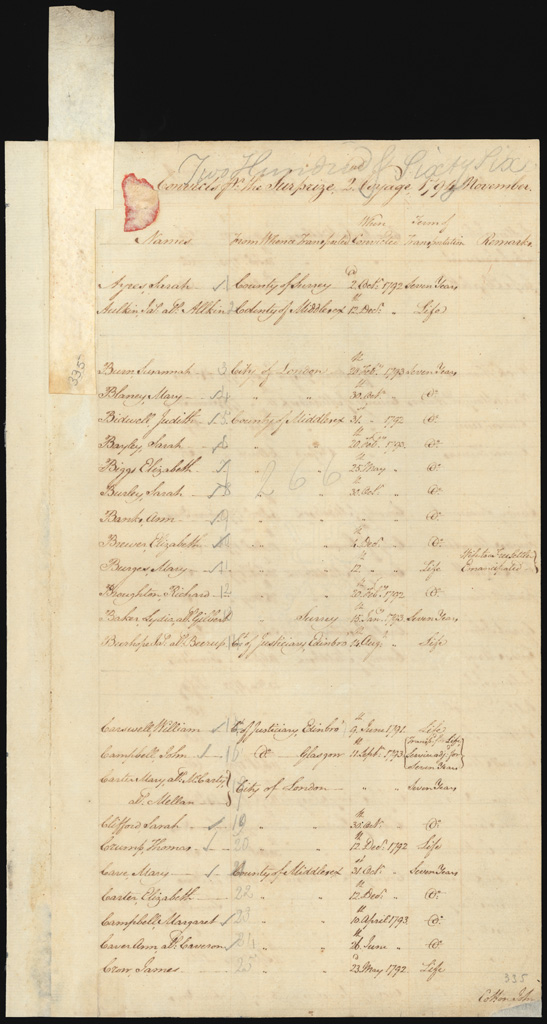 Two Hundred & Sixty Six
Convicts pr. the Surprize 2. Voyage 1794 November.
Names From Whence Transported When Convicted Term of Transportation Remarks
Ayres Sarah 1 County of Surrey 2 Octr. 1792 Seven Years
County of Middlesex 12 Decr. " Life
3 City of London 20 Feby. 1793 Seven Years
Blaney, Mary 4 " " 30 Octr. " Do.
Bidwell Judith 5 County of Middlesex 31 " 1792 Do.
Sarah " " 20 Feby. 1793 Do.
Biggs Elizabeth 7 " " 25 May " Do.
Burley, Sarah 8 " " 30 Octr. " Do.
266
Banks Ann 9 " " " Do.
Brewer, Elizabeth 10 " " 4 Decr. " Do.
Burges, Mary 11 " " 12 " " Life Emancipated
Broughton, Richard 12 " " 20 Feby. 1792 Do.
Barker Lydia, als. Gilbert " Surrey 15 Jany. 1793 Seven Years
Ct. of Justiciary, Edinbro' 14 Augt. " Life
Carswell, William Ct. of Justiciary, Edinbro' 9 June 1791 Life
Campbell, John 16 Do. Glasgow 11 Septr. 1793 Transpd. for Life Seven Years
Carter Mary, als. McCarty, als. Mellan } City of London " " Seven Years
Clifford Sarah 19 " " 30 Octr. " Do.
Crump, Thomas 20 " " 12 Decr. 1792 Life
Cave Mary County of Middlesex 31 Oct. " Seven Years
Carter, Elizabeth 22 " " 12 Decr. " Do.
Campbell, Margaret 23 " " 10 April 1793 Do.
Caver Ann, als. Caveron 24 " " 26 June " Do.
Crow, James 25 " " 23 May 1792 Life
335
335
Cotton John